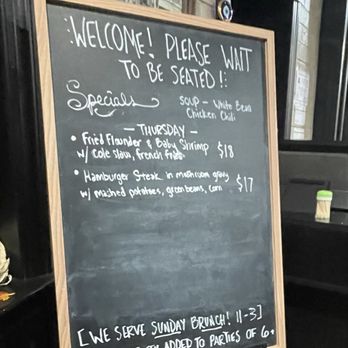 WELCOME! PLEASE WAIT
TO BE SEATED!
Specials
SOUP - White Bean
Chicken Chili
— THURSDAY —
• Fried Flounder & Baby Shrimp
w/ Cole Slaw, french fries $18
• Hamburger Steak in mushroom gravy
w/ mashed potatoes, green beans, corn $17
[WE SERVE SUNDAY BRUNCH! 11-3]
ADDED TO PARTIES OF 6+